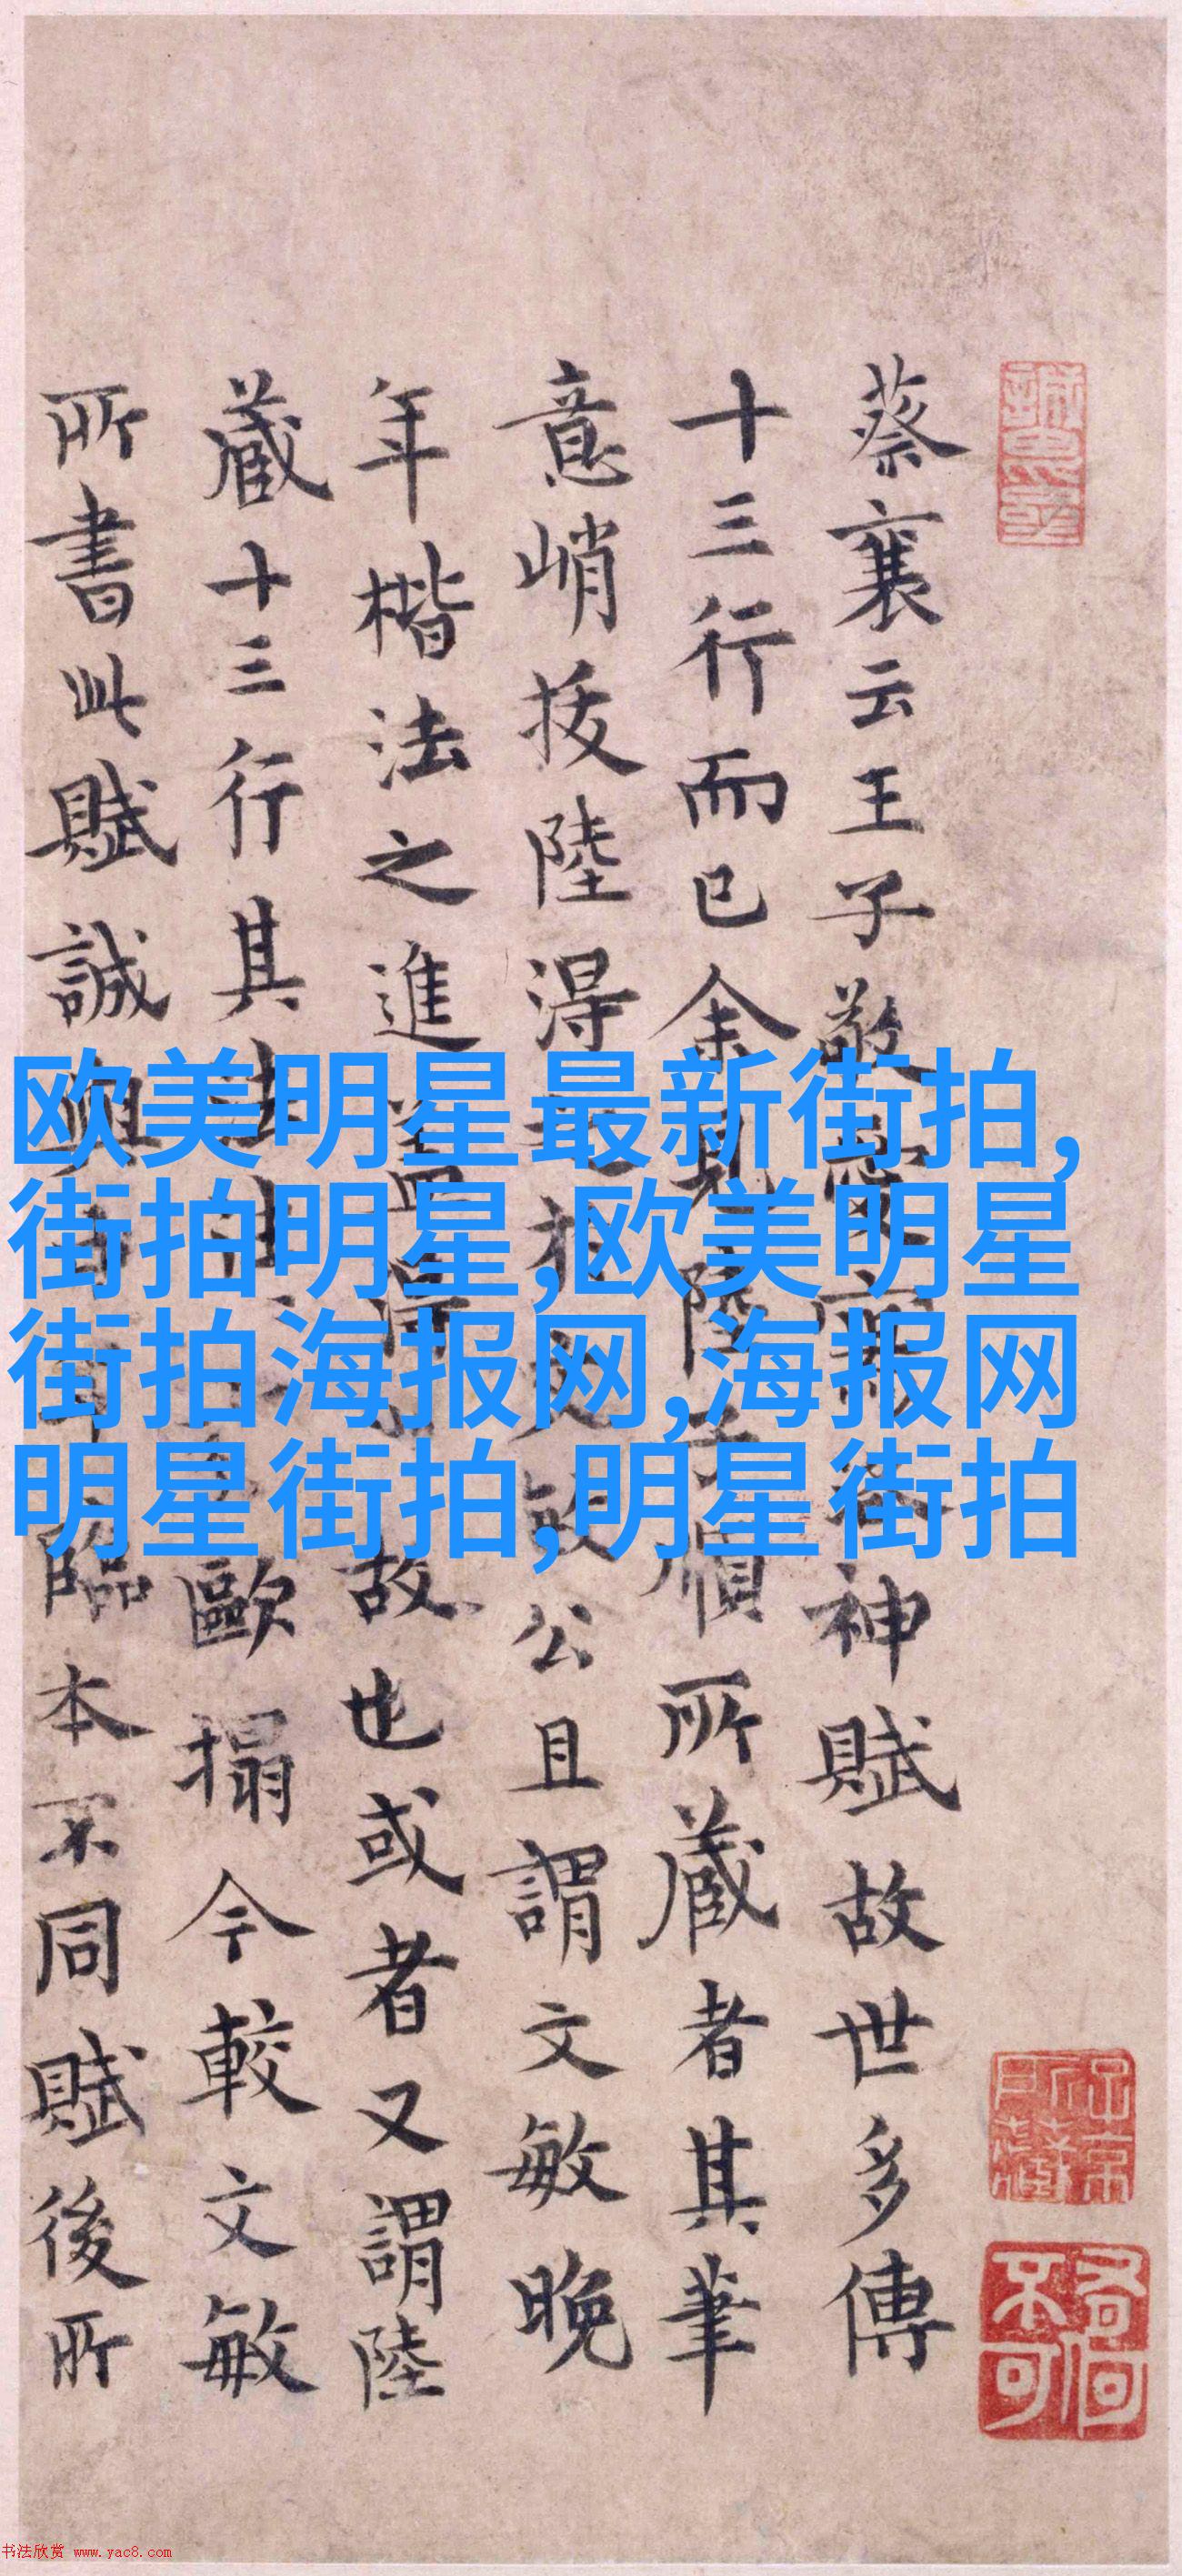 蔡襄云王子敬神賦故世多傳
十三行而已余見陸子順所藏者其筆
意峭拔陸得文敏公且謂文敏晚
年楷法之進蓋得故也或者又謂陸
藏十三行其歐搨今較文敏
所書此賦誠與臨本不同賦後所
欧美明星最新街拍,
街拍明星,欧美明星
街拍海报网,海报网
明星街拍,明星街拍
书法欣赏 www.yac8.com